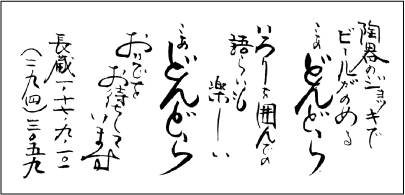 陶器のジョッキで
ビールがのめる
こゝゐどんどいら
いろりを囲んでの
語らいも
楽しい
こゝゐどんどいら
おいでを
お待ちして
います
長蔵一、十七、九、一〇
(二九四)三〇五九